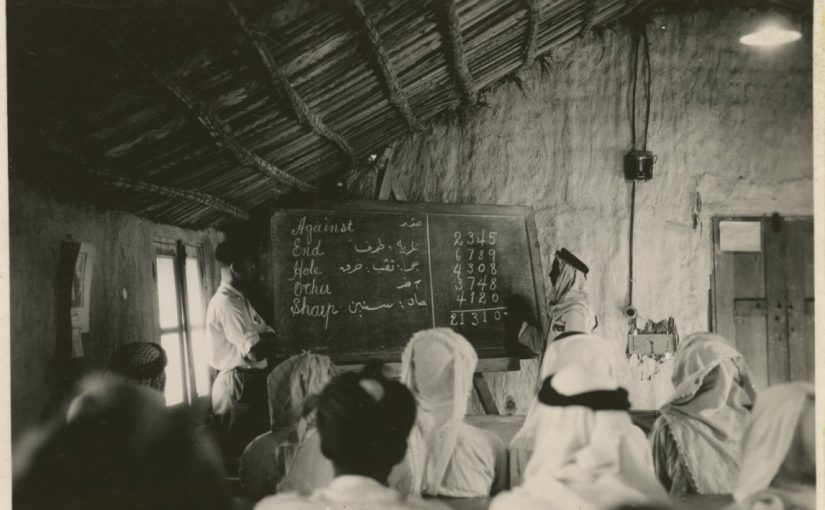 Against ضد
End نهاية : طرف
Hole
Othu
Sharp حاد : سنين
2345
6789
4308
3748
4120
21310